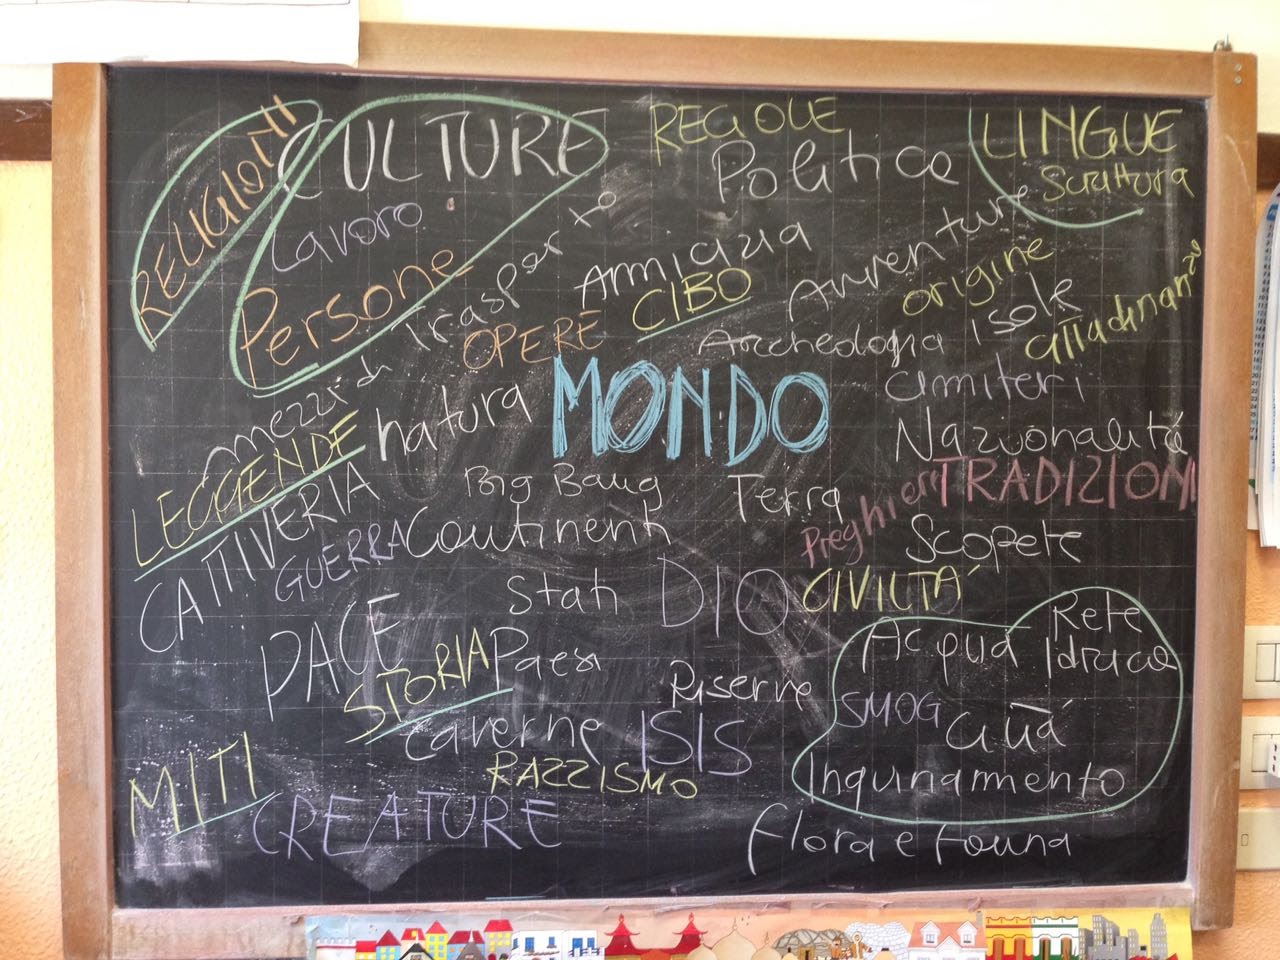 RELIGIONI
CULTURE
REGOLE
Politica
LINGUE
Scrittura
Lavoro
Persone
mezzi di trasporto
Amicizia
CIBO
Avventure
origine
isole
cittadinanze
OPERE
Archeologia
cimiteri
MONDO
natura
LEGGENDE
Nazionalità
TRADIZIONI
CATTIVERIA
Big Bang
Terra
Preghiere
GUERRA
Continenti
Scoperte
Stati
DIO
CIVILTÀ
PACE
STORIA
Paesi
Riserve
Acqua
Rete
Idrica
SMOG
Città
Inquinamento
caverne
ISIS
RAZZISMO
MITI
CREATURE
flora e fauna